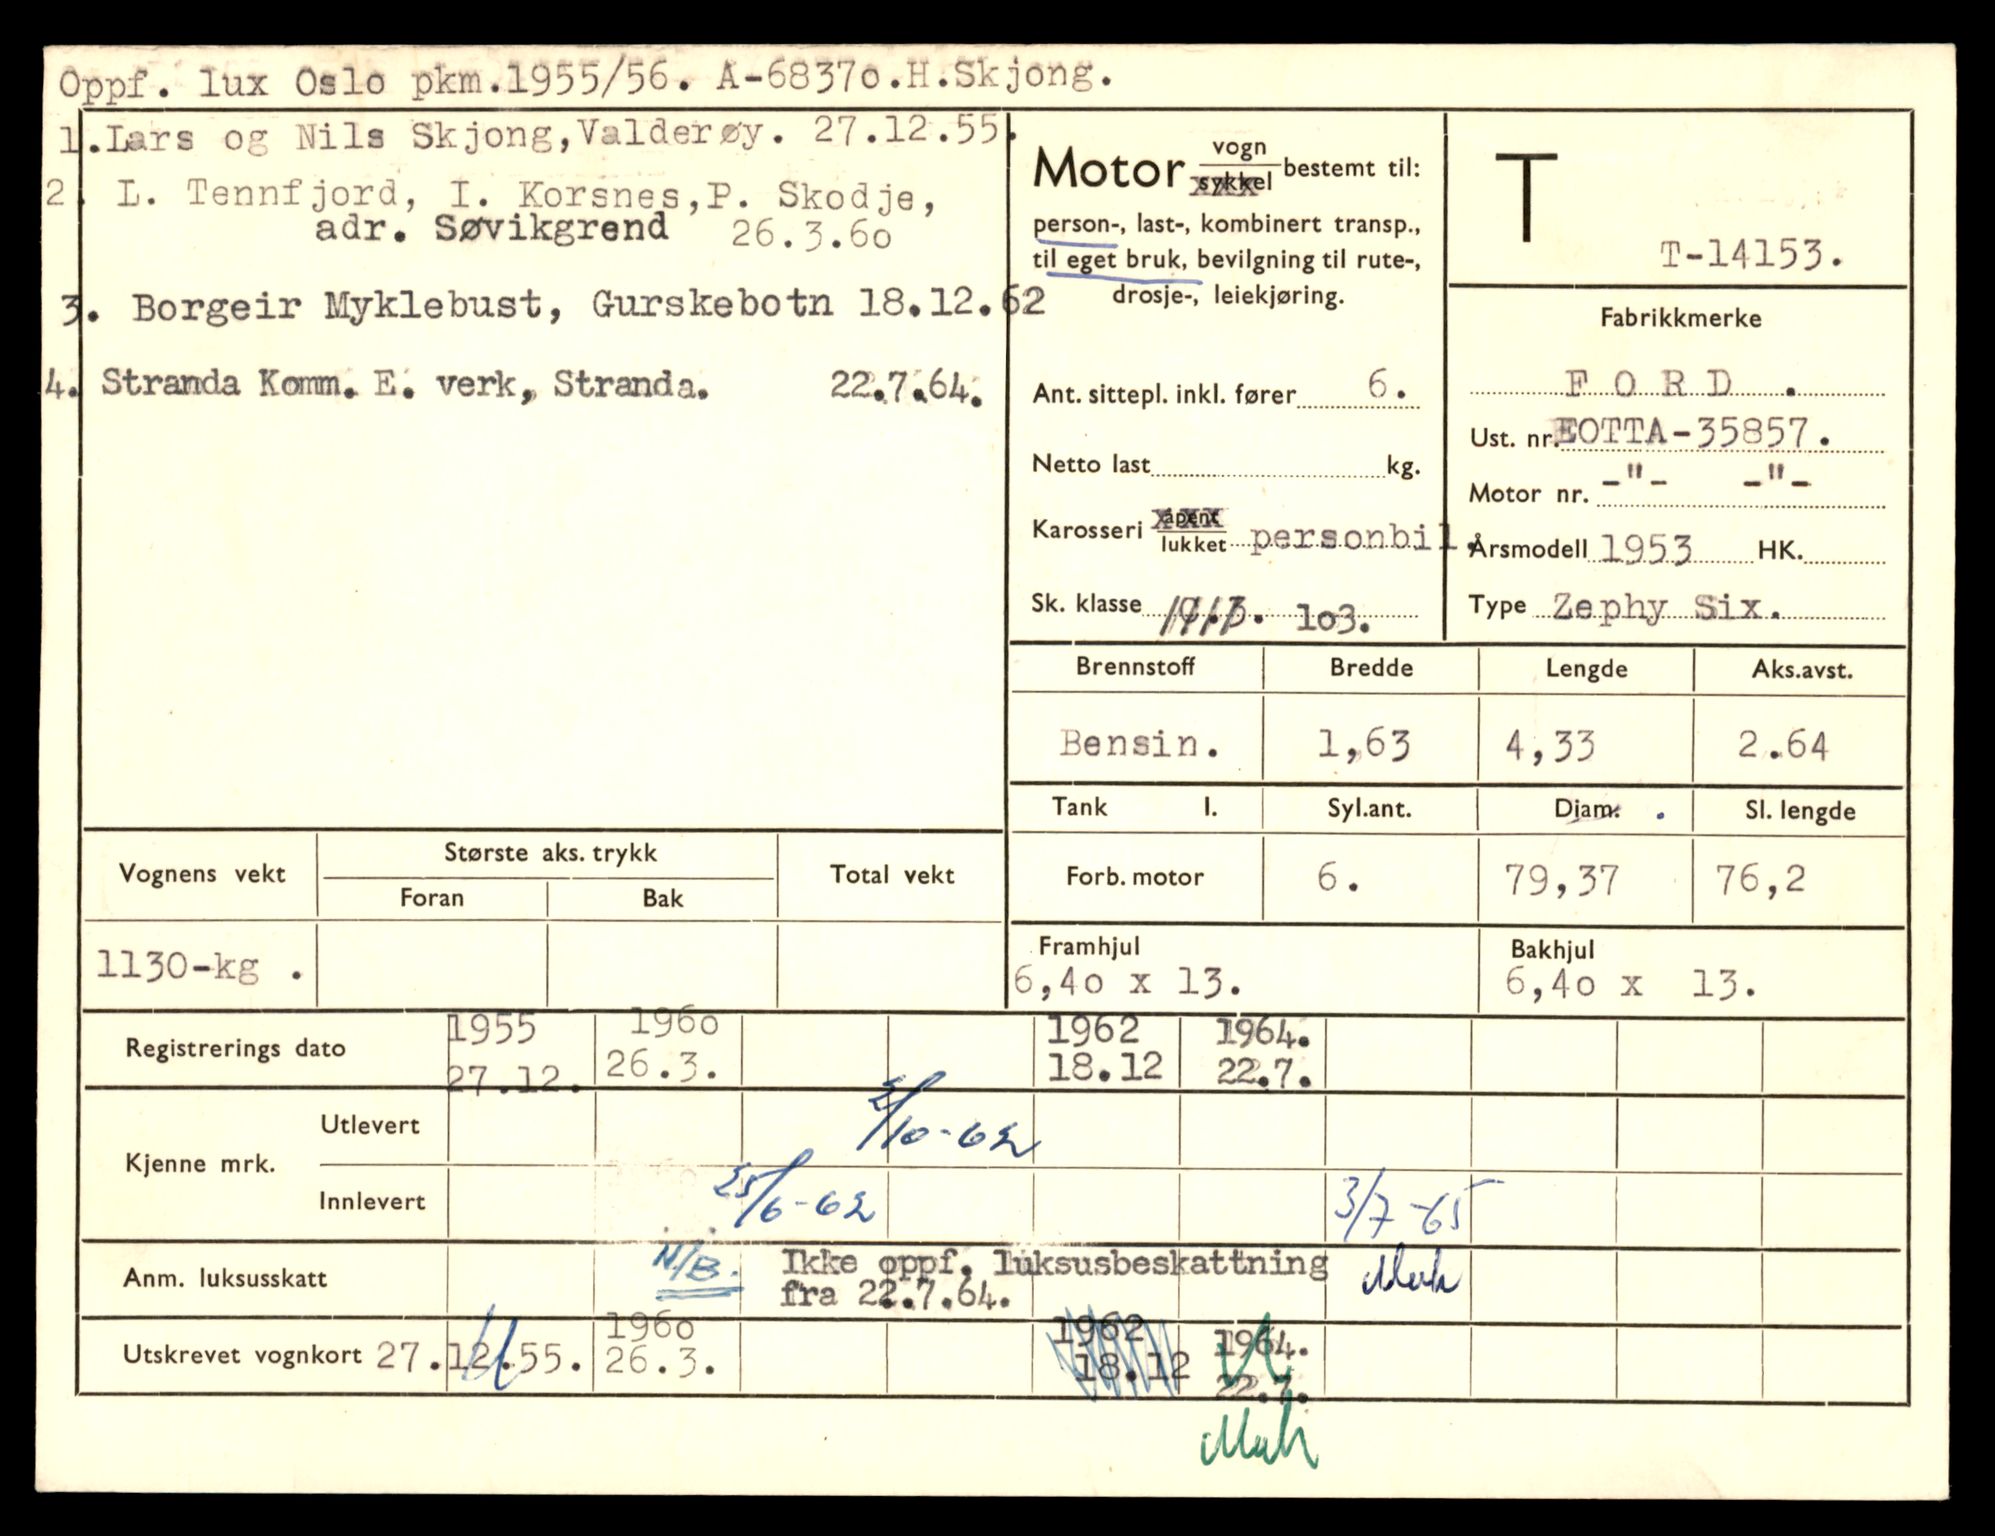 Oppf. lux Oslo pkm.1955/56. A-6837o.H.Skjong.
1.Lars og Nils Skjong,Valderøy. 27.12.55.
2. L. Tennfjord, I. Korsnes,P. Skodje,
adr. Søvikgrend 26.3.6o
3. Borgeir Myklebust, Gurskebotn 18.12.62
4. Stranda Komm. E. verk, Stranda. 22.7.64.
Motor vogn sykkel bestemt til:
person-, last-, kombinert transp.,
til eget bruk, bevilgning til rute-,
drosje-, leiekjøring.
Ant. sittepl. inkl. fører 6.
Netto last kg.
Karosseri åpent lukket personbil.
Sk. klasse 1o3.
T
T-14153.
Fabrikkmerke
F O R D .
Ust. nr. EOTTA-35857.
Motor nr. -"- -"-
Årsmodell 1953 HK.
Type Zephy Six.
Brennstoff Bredde Lengde Aks.avst.
Bensin. 1,63 4,33 2.64
Tank l. Syl.ant. Diam. Sl. lengde
Forb. motor 6. 79,37 76,2
Framhjul Bakhjul
6,4o x 13. 6,4o x 13.
Vognens vekt Største aks. trykk Total vekt
Foran Bak
1130-kg .
Registrerings dato
1955 196o 1962 1964.
27.12. 26.3. 18.12 22.7.
Kjenne mrk.
Utlevert 2/10-62
Innlevert 25/6-62 3/7-65
Anm. luksusskatt N/B. Ikke oppf. luksusbeskattning
fra 22.7.64.
Utskrevet vognkort 27.12.55. 196o 1962 1964.
26.3. 18.12 22.7.